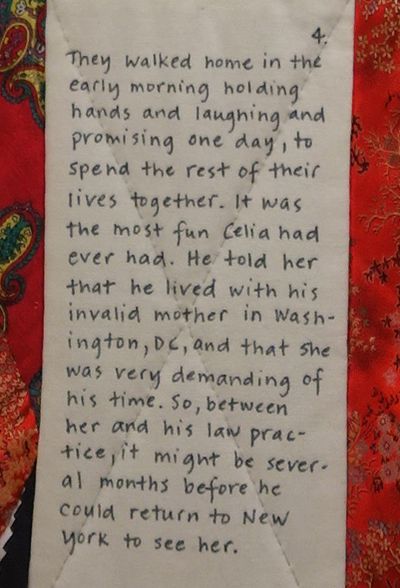 4.
They walked home in the
early morning holding
hands and laughing and
promising one day, to
spend the rest of their
lives together. It was
the most fun Celia had
ever had. He told her
that he lived with his
invalid mother in Wash-
ington, DC, and that she
was very demanding of
his time. So, between
her and his law prac-
tice, it might be sever-
al months before he
could return to New
York to see her.